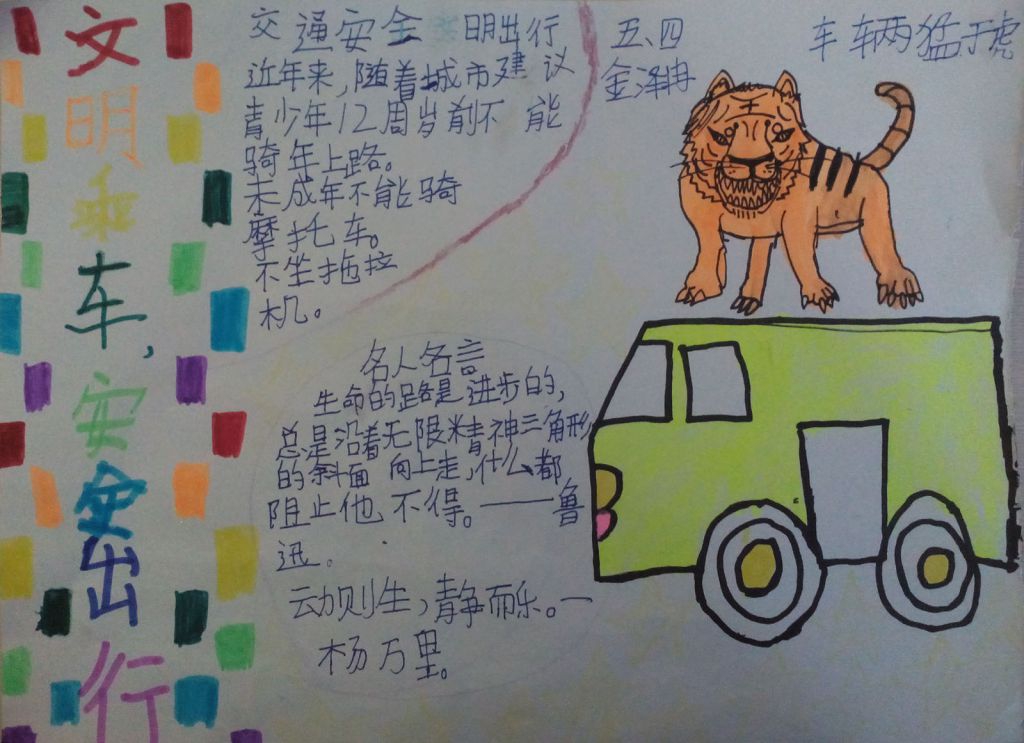 文明乘车,安全出行
交通安全 明出行
近年来,随着城市建议
青少年12周岁前不能
骑车上路。
未成年不能骑
摩托车。
不坐拖拉
机。
五、四
金泽冉
车辆猛于虎
名人名言
生命的路是进步的,
总是沿着无限精神三角形
的斜面向上走,什么都
阻止他不得。——鲁
迅。
云动则生,静而乐。—
杨万里。